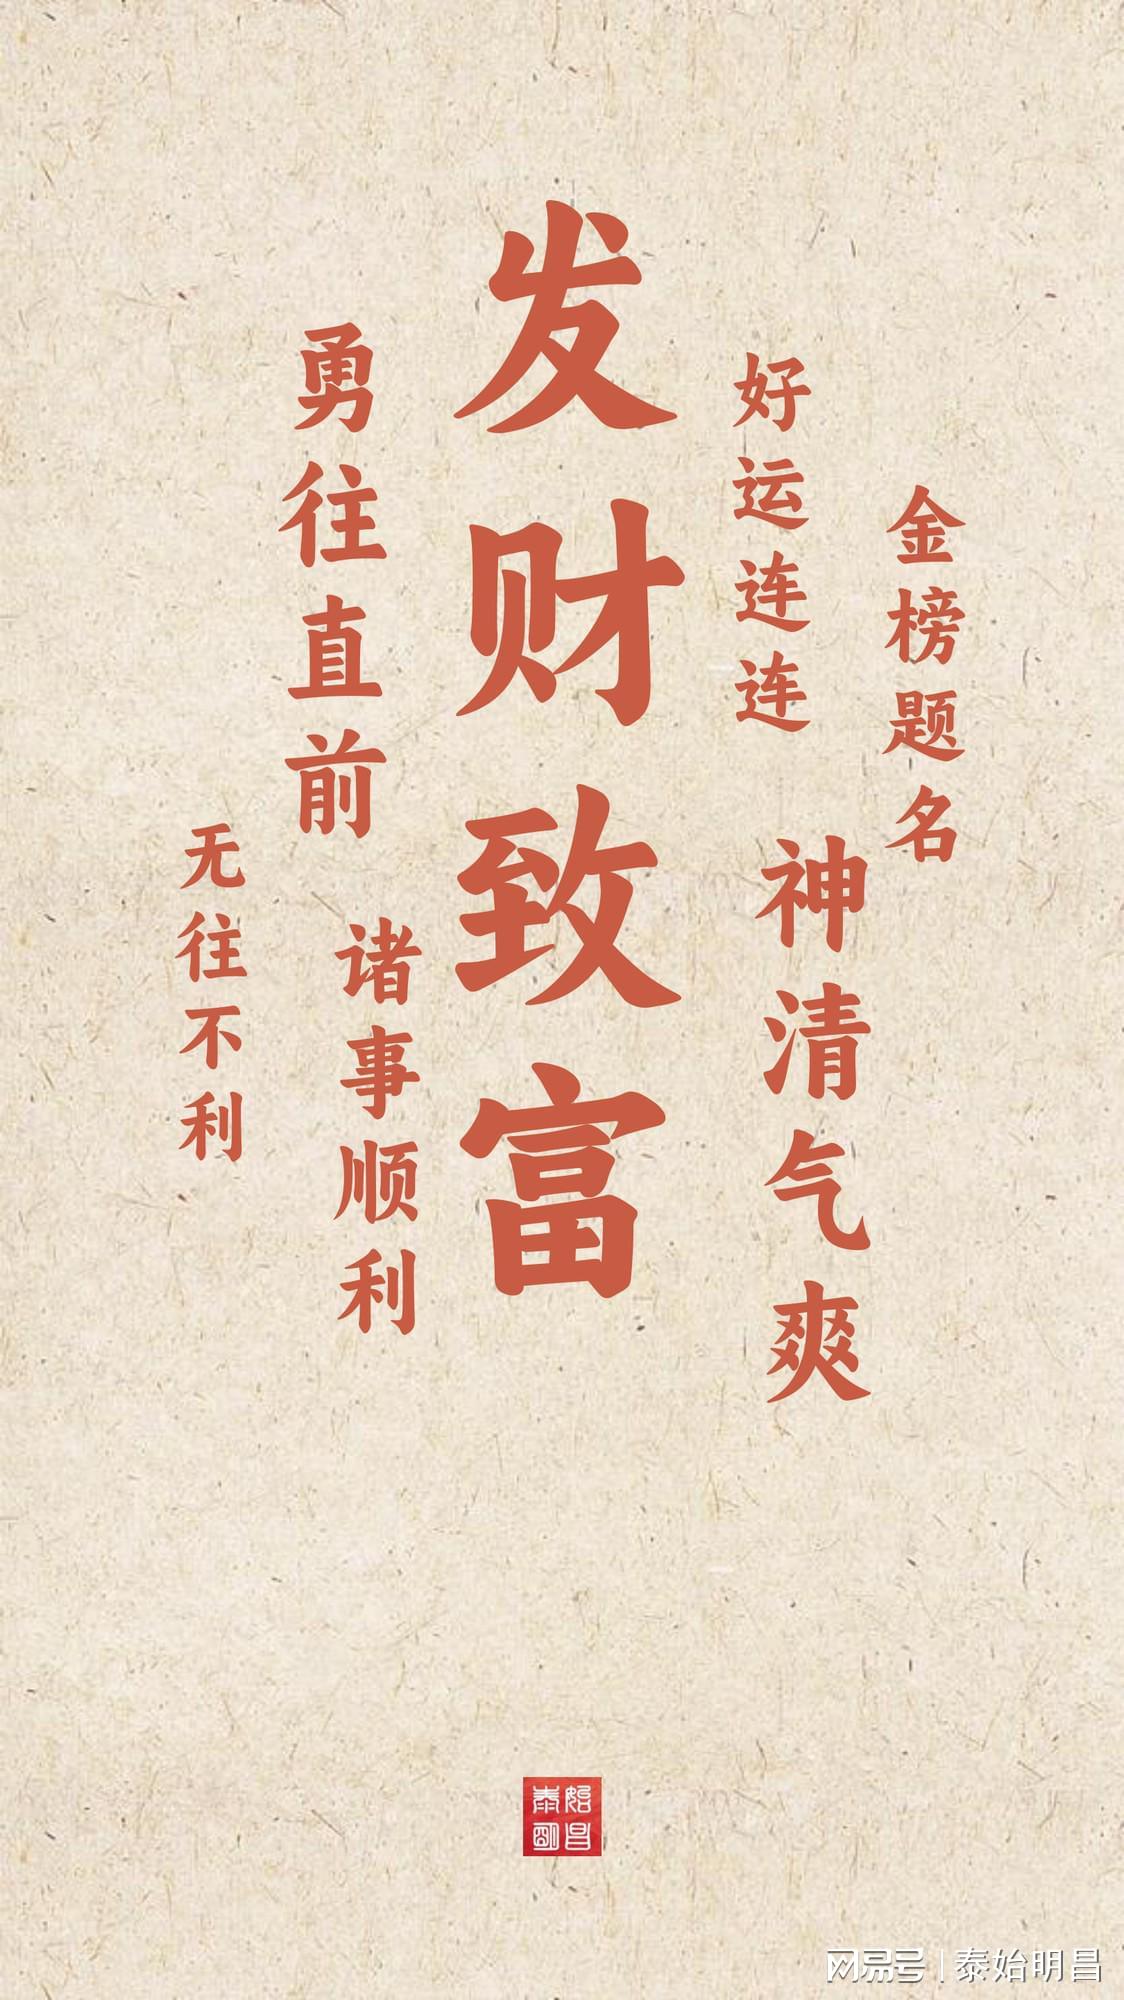 发财致富
勇往直前
好运连连
金榜题名
无往不利
诸事顺利
神清气爽
泰始明昌
网易号 | 泰始明昌